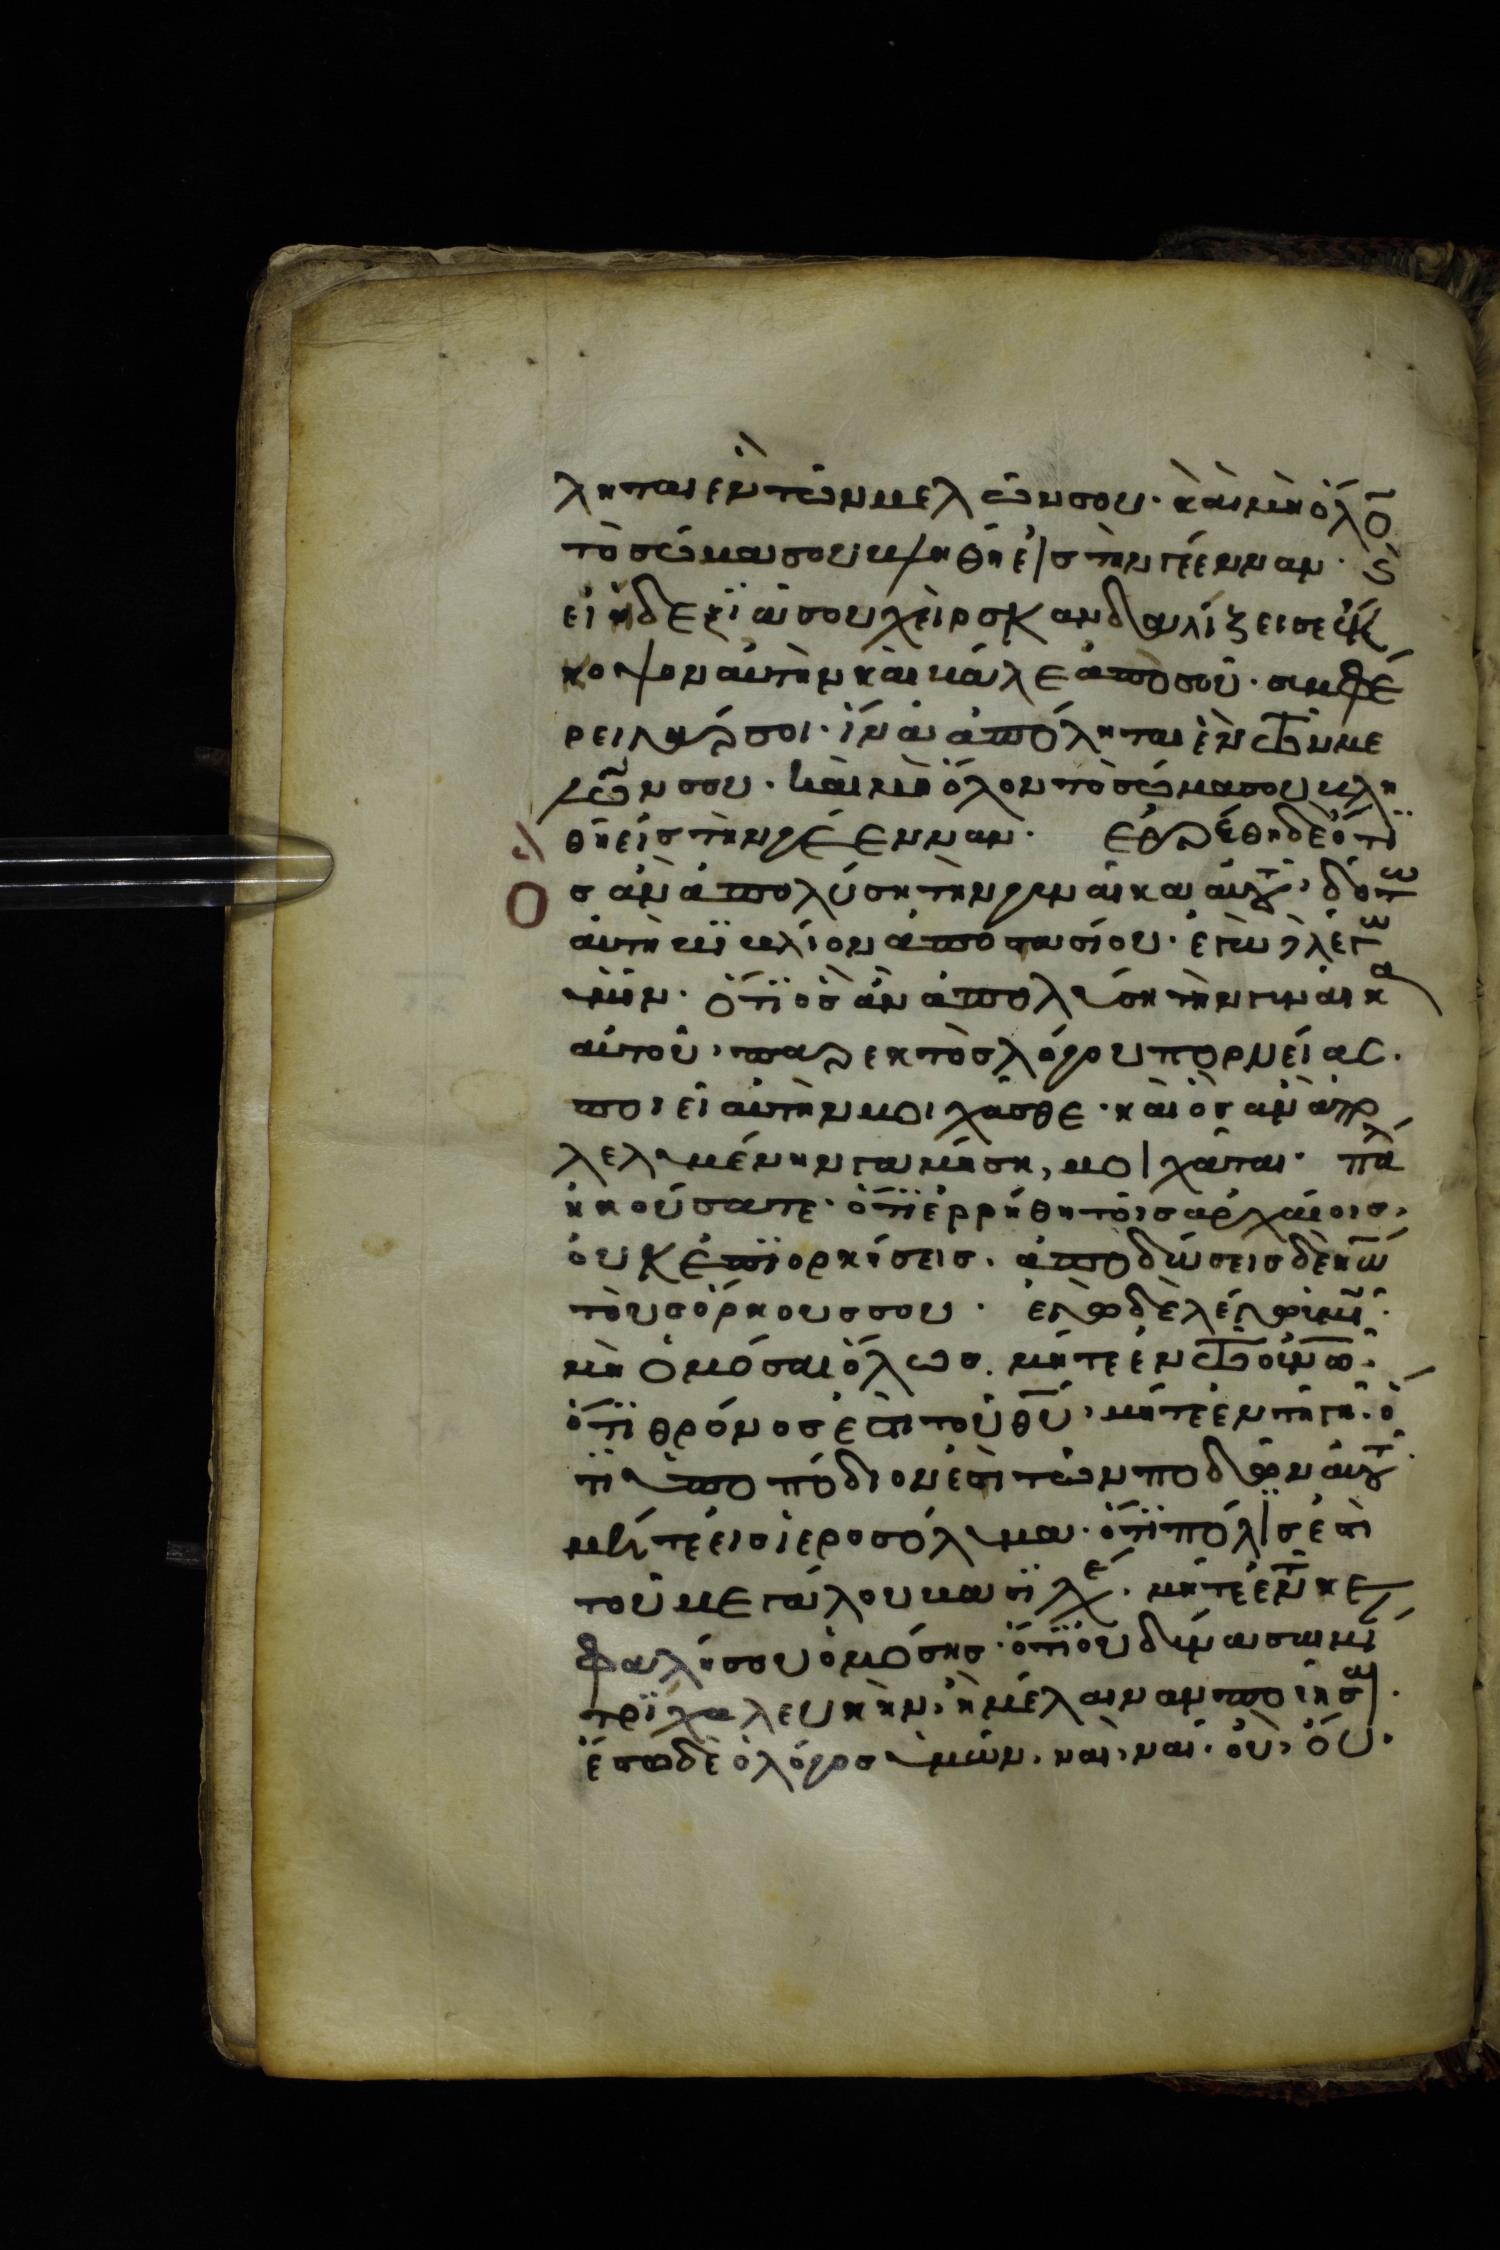 ληται ἓν τῶν μελῶν σου· καὶ μὴ ὅλο̅
τὸ σῶμα σου βληθῆ εἰς τὴν γέενναν· ϛ
εἰ ἡ δεξϊά σου χεὶρ σκανδαλίζει σε ἔκ
κοψον αὐτὴν καὶ βάλε ἀπὸ σοῦ· συμφέ
ρει γάρ σοι· ἵνα ἀπόληται ἓν τῶν με
λῶν σου· καὶ μὴ ὅλον τὸ σῶμα σου βλη
θῆ εἰς τὴν γέενναν· ἐρρέθη δὲ ὅτϊ
Ο
ς ἂν ἀπολύση τὴν γυναῖκα αὐτ, δότω
αὐτῆ βϊβλίον ἀποστασίου· ἐγὼ δὲ λέγω
ὑμῖν· ὅτϊ ὃς ἂν ἀπολύση τὴν γυναῖκα
αὐτοῦ, παρεκτὸς λόγου πορνείας.
ποιεῖ αὐτὴν μοιχᾶσθε· καὶ ὃς ἂν ἀπο
λελυμένην γαμήση, μοιχᾶται· πάλ
ἠκούσατε· ὅτϊ ἐρρήθη τοῖς ἀρχαίοις,
οὐκ ἐπϊορκήσεις. ἀποδώσεις δὲ κ̅ω̅
τοὺς ὅρκους σου· ἐγὼ δὲ λέγω ὑμῖν·
μὴ ὁμόσαι ὅλως. μήτε ἐν τῶ οὐ̅ν̅ω̅·
ὅτϊ θρόνος ἐστὶ τοῦ θ̅υ̅, μήτε ἐν τῆ γῆ· ὅ
τϊ ὑποπόδιον ἐστὶ τῶν ποδῶν αὐτ·
μήτε εἰς ἱεροσόλυμα· ὅτϊ πόλϊς ἐστὶ
τοῦ μεγάλου βασϊλέ· μήτε ἐν τῆ κε
φαλῆ σου ὀμόσης· ὅτϊ οὐ δύνασαι μί
τρϊχα λευκὴν, ἢ μέλαιναν ποιῆσαι.
ἔστω δὲ ὁ λόγος ὑμῶν, ναὶ, ναί· οὒ, οὔ.